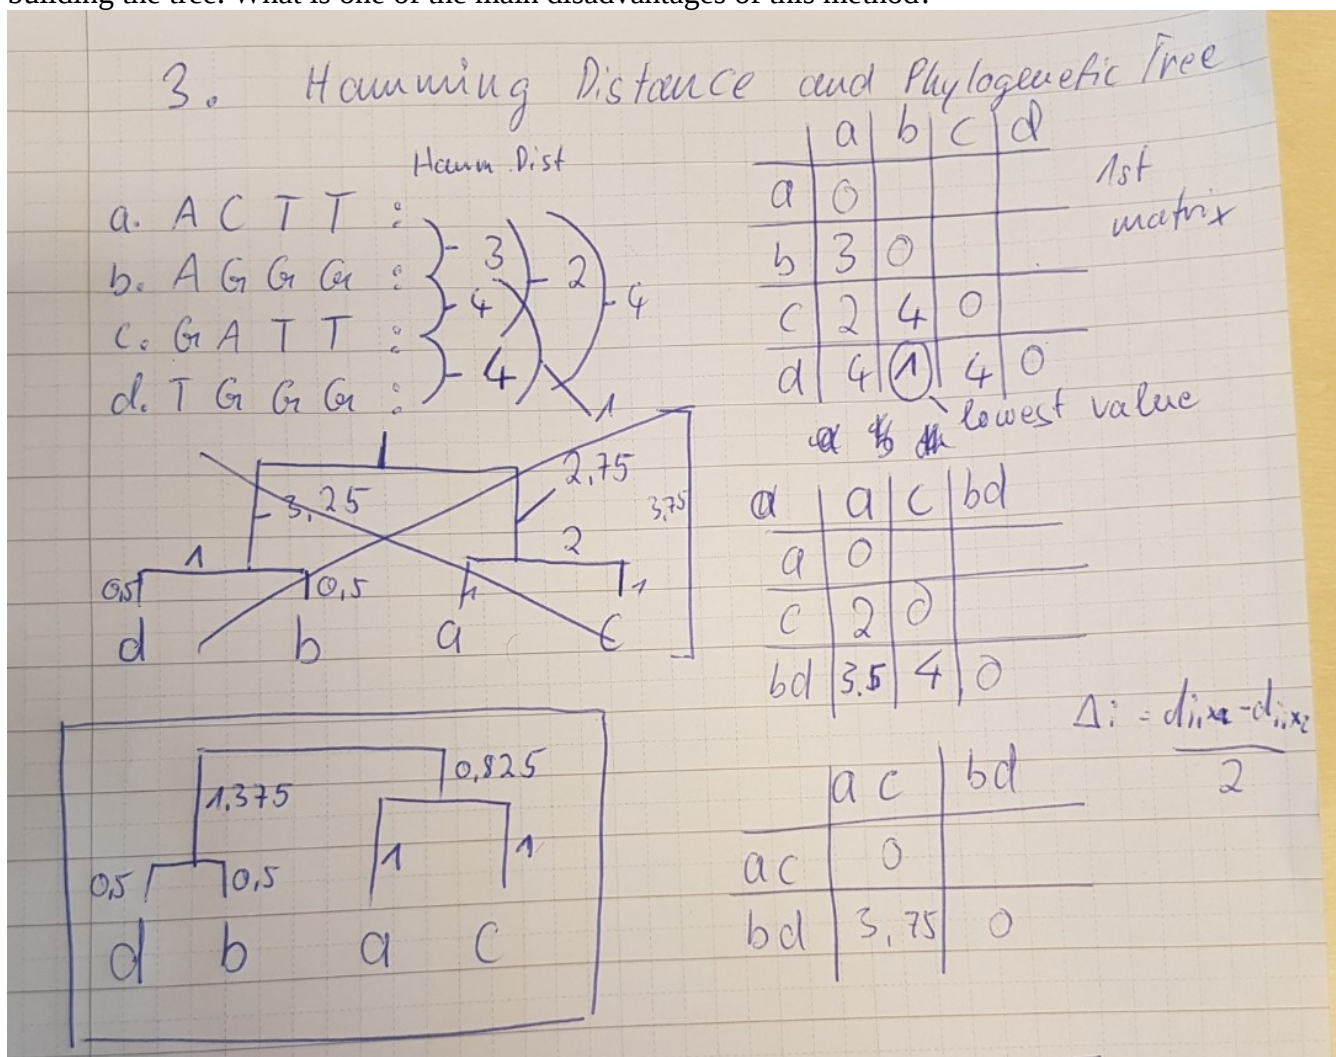 building the tree. What is one of the main disadvantages of this method?
3. Hamming Distance and Phylogenetic Tree
Hamm. Dist
a. A C T T :
b. A G G G :
c. G A T T :
d. T G G G :
3
4
4
2
4
1
a b c d
a 0
b 3 0
c 2 4 0
d 4 1 4 0
1st
matrix
lowest value
3,25
2,75
3,75
1
2
0,5
0,5
1
1
d b a c
a c bd
a 0
c 2 0
bd 3.5 4 0
Δi = di,x1 - di,x2
2
ac bd
ac 0
bd 3,75 0
1,375
0,825
0,5
0,5
1
1
d b a c